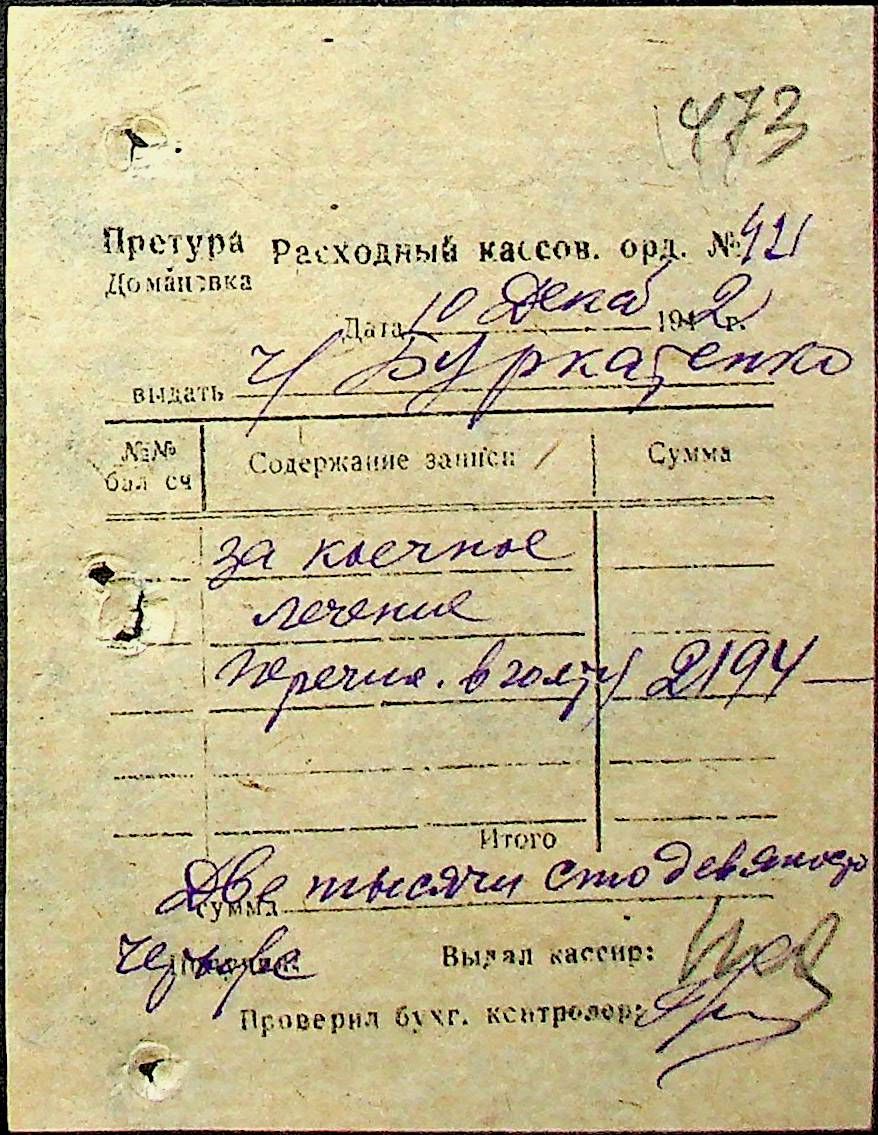 473
Претура Расходный кассов. орд. №
Домановка
Дата 10 Декаб 1942 г.
выдать ч/ Буркатенко
№№ бал сч Содержание записи Сумма
за коечное
лечение
перечис. в голту 2194 —
Итого
Сумма Две тысячи сто девяносто
четыре
Выдал кассир:
Проверил бухг. контролер: